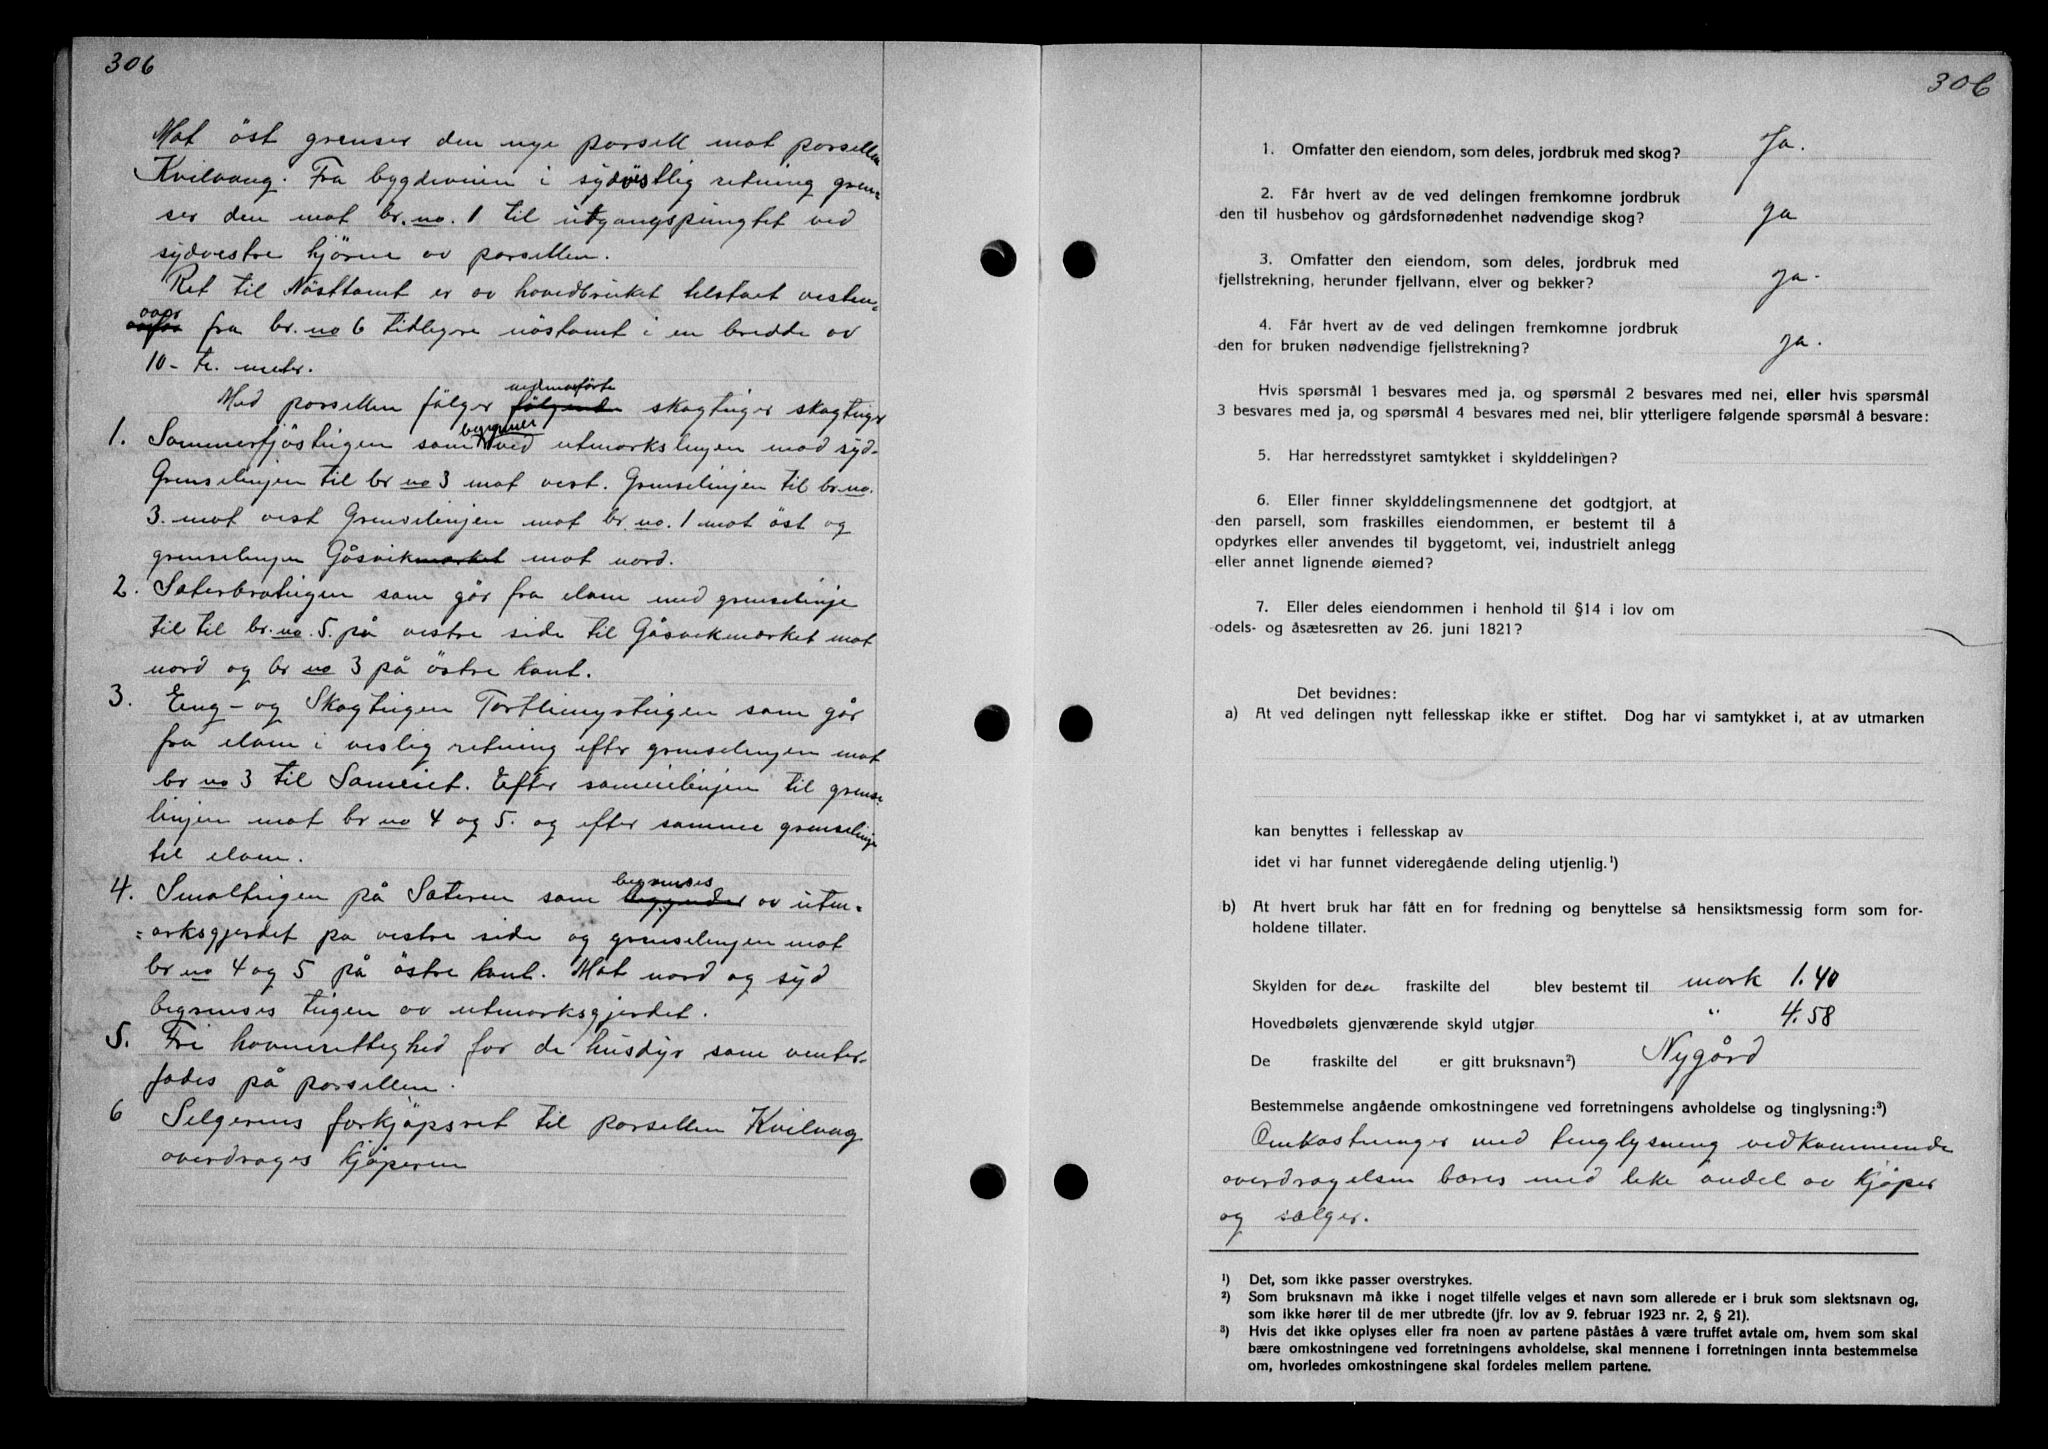 306
Mot öst grenser den nye parsell mot parsellen
Kvilvaag. Fra bygdeveien i sydvestlig retning gren-
ser den mot br. no. 1 til utgangspungtet ved
sydvestre hjörne av parsellen.
Ret til Nösttomt er av hovedbruket tilstaet vesten-
fra br. no 6 tidligere nöstomt i en bredde av
10 - ti. meter.
nedenforförte
Med parsellen fölger fölgende skogteiger skogteiger
begynner
1. Sommerfjösteigen som ved utmarkslinjen mod syd-
Grenselinjen til br no 3 mot vest. Grenselinjen til br. no.
3. mot vest Grenselinjen mot br. no. 1 mot öst og
grenselinjen Gåsvikmarket mot nord.
2. Sæterbroteigen som går fra elven med grenselinje
til til br. no. 5. på vestre side til Gåsvikmarket mot
nord og br no 3 på östre kant.
3. Eng- og Skogteigen Torvlimyrteigen som går
fra elven i veslig retning efter grenselinjen mot
br no 3 til Sameiet. Efter sameielinjen til grense-
linjen mot br no 4 og 5. og efter samme grenselinje
til elven.
begrenses
4. Smalteigen på Sæteren som av utm-
=arksgjerdet på vestre side og grenselinjen mot
br no 4 og 5 på östre kant. Mot nord og syd
begrenses teigen av utmarksgjerdet.
5. Fri havnerettighed for de husdyr som venter-
fødes på parsellen.
6 Selgerens forkjøpsret til parsellen Kvilvaag
overdrages kjøperen
306
1. Omfatter den eiendom, som deles, jordbruk med skog? Ja.
2. Får hvert av de ved delingen fremkomne jordbruk
den til husbehov og gårdsfornødenhet nødvendige skog? ja
3. Omfatter den eiendom, som deles, jordbruk med
fjellstrekning, herunder fjellvann, elver og bekker? ja.
4. Får hvert av de ved delingen fremkomne jordbruk
den for bruken nødvendige fjellstrekning? ja.
Hvis spørsmål 1 besvares med ja, og spørsmål 2 besvares med nei, eller hvis spørsmål
3 besvares med ja, og spørsmål 4 besvares med nei, blir ytterligere følgende spørsmål å besvare:
5. Har herredsstyret samtykket i skylddelingen?
6. Eller finner skylddelingsmennene det godtgjort, at
den parsell, som fraskilles eiendommen, er bestemt til å
opdyrkes eller anvendes til byggetomt, vei, industrielt anlegg
eller annet lignende øiemed?
7. Eller deles eiendommen i henhold til § 14 i lov om
odels- og åsætesretten av 26. juni 1821?
Det bevidnes:
a) At ved delingen nytt fellesskap ikke er stiftet. Dog har vi samtykket i, at av utmarken
kan benyttes i fellesskap av
idet vi har funnet videregående deling utjenlig.¹)
b) At hvert bruk har fått en for fredning og benyttelse så hensiktsmessig form som for-
holdene tillater.
Skylden for den fraskilte del blev bestemt til mark 1.40
Hovedbølets gjenværende skyld utgjør " 4.58
De fraskilte del er gitt bruksnavn²) Nygård
Bestemmelse angående omkostningene ved forretningens avholdelse og tinglysning:³)
Omkostninger med tinglysning vedkommende
overdragelsen bæres med like andel av kjøper
og sælger.
¹) Det, som ikke passer overstrykes.
²) Som bruksnavn må ikke i noget tilfelle velges et navn som allerede er i bruk som slektsnavn og,
som ikke hører til de mer utbredte (jfr. lov av 9. februar 1923 nr. 2, § 21).
³) Hvis det ikke oplyses eller fra noen av partene påståes å være truffet avtale om, hvem som skal
bære omkostningene ved forretningens avholdelse, skal mennene i forretningen innta bestemmelse
om, hvorledes omkostningene skal fordeles mellem partene.